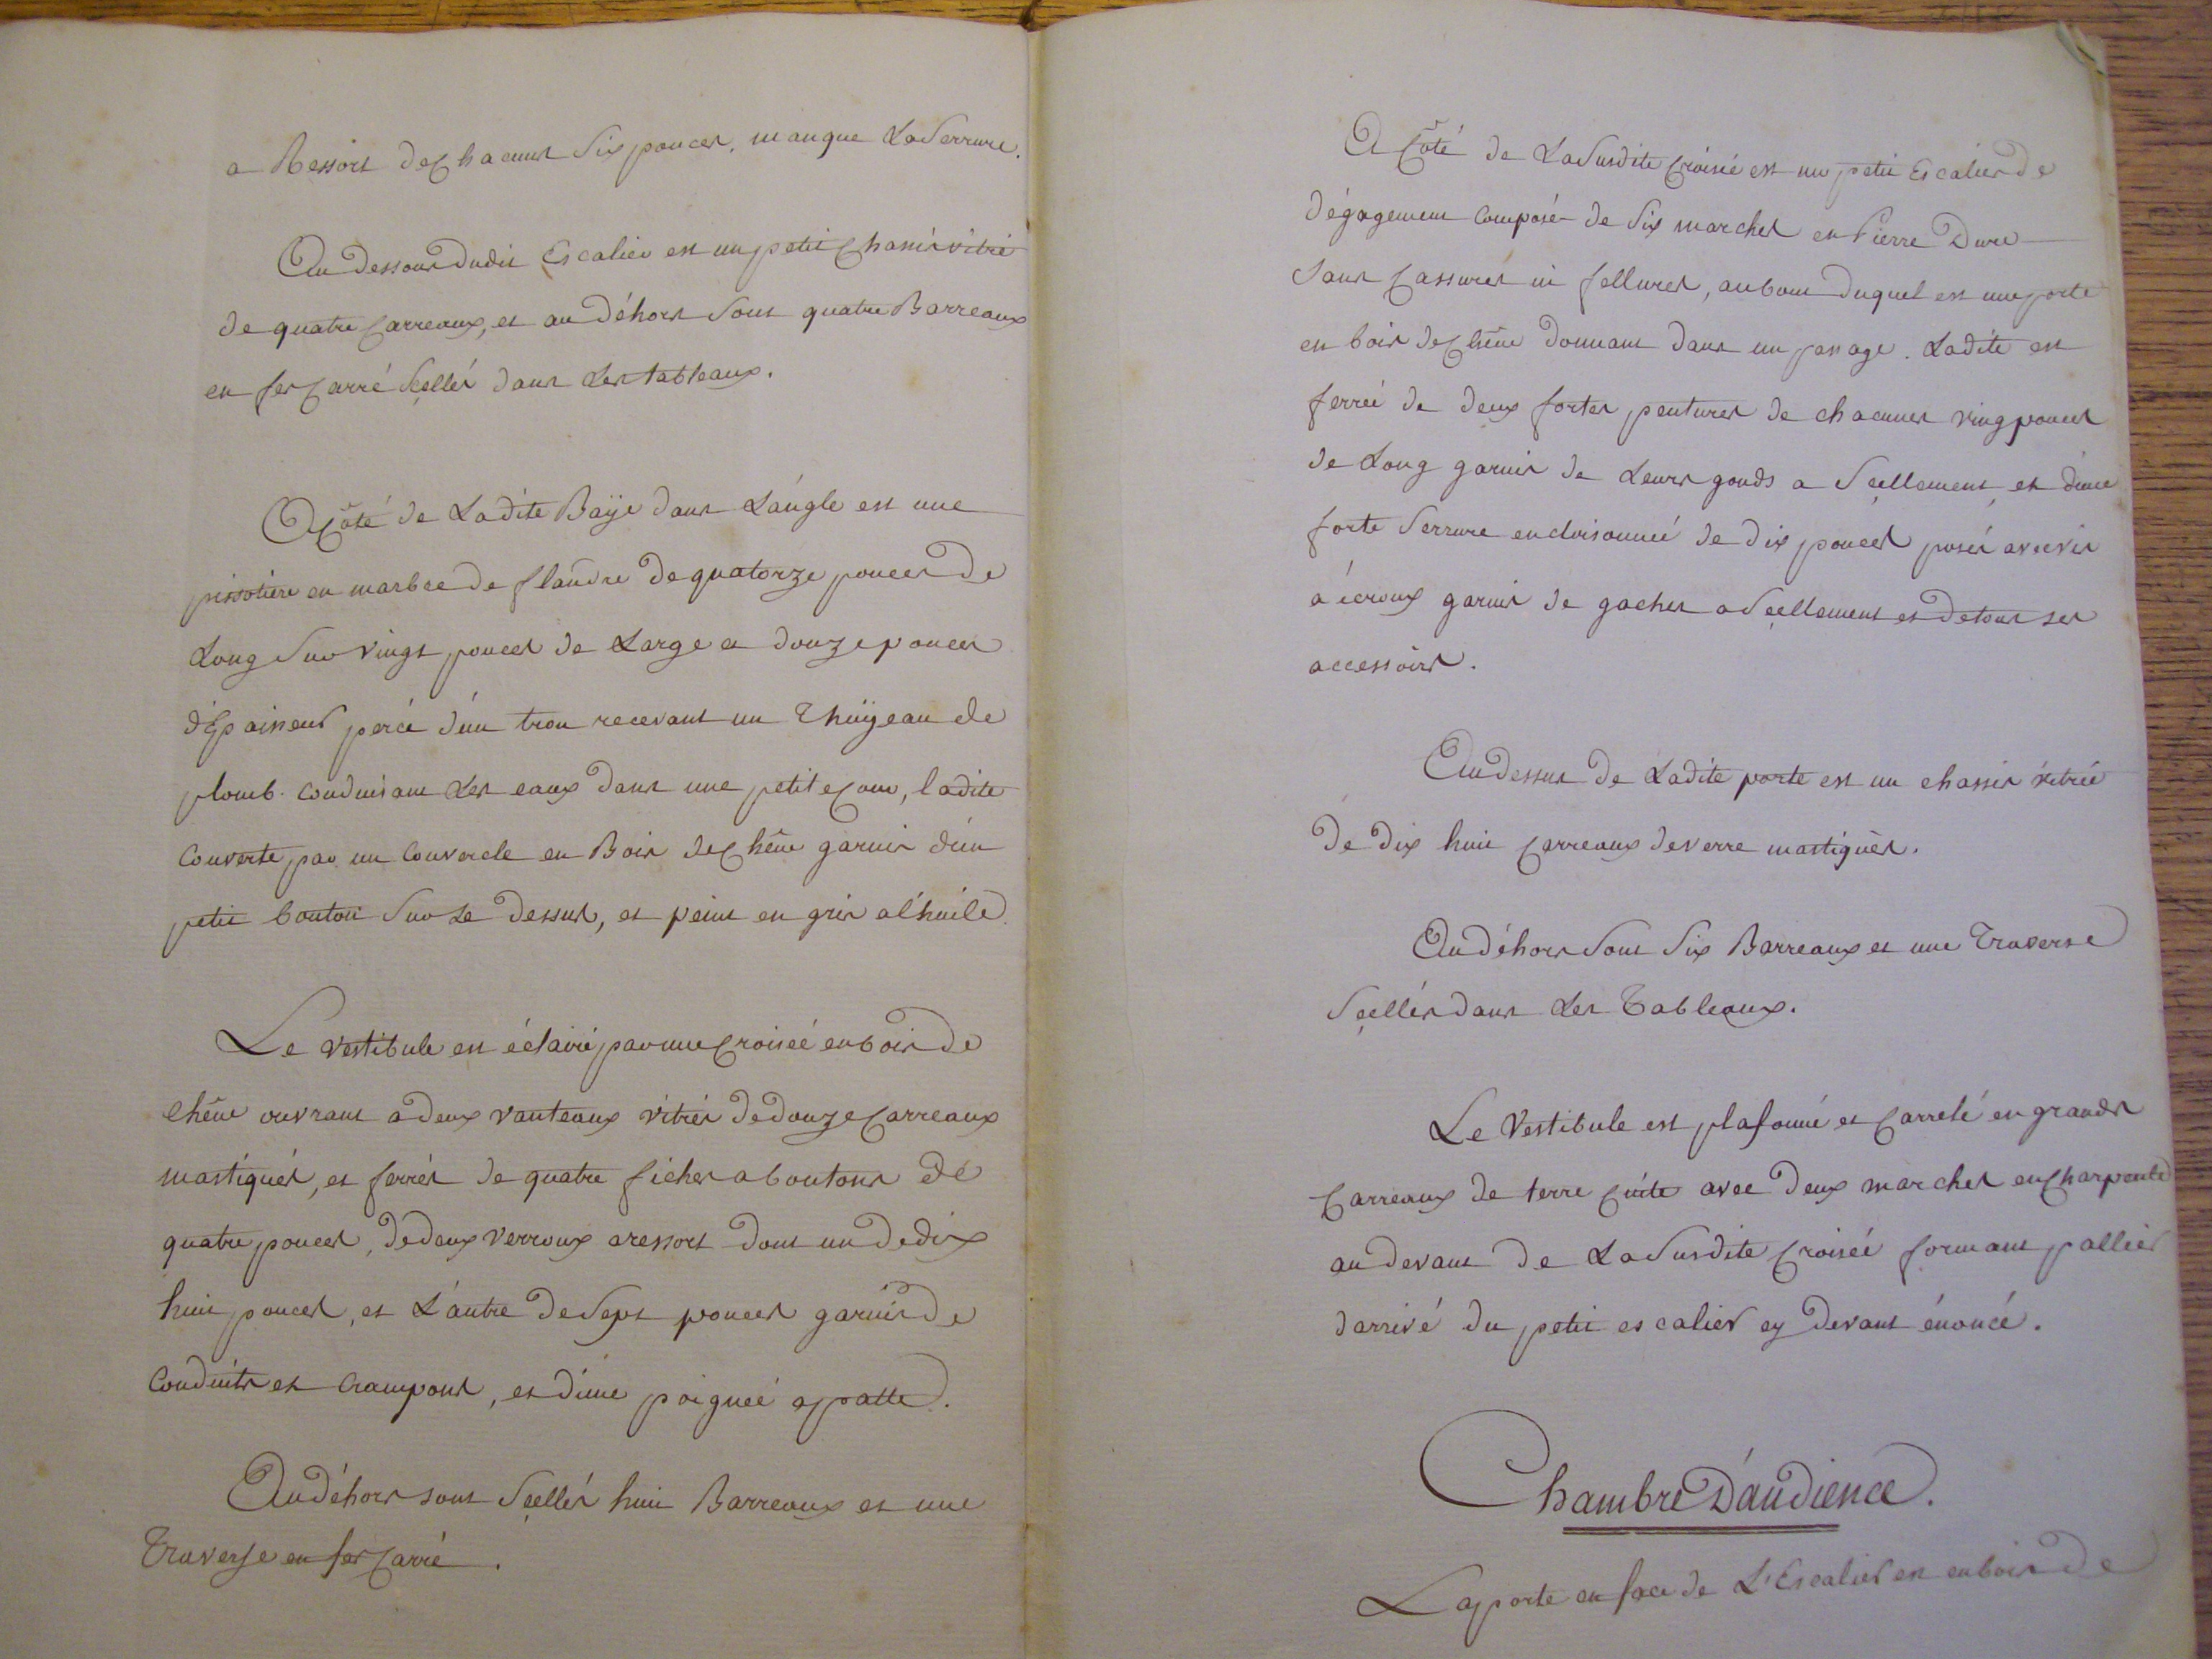 a Ressort de Chacuns Six pouces. manque La Serrure.
Au dessous dudit Escalier est un petit Chassis vitré
de quatre Carreaux, et au déhors Sont quatre Barreaux
en fer Carré Scellés dans Les tableaux.
A Côté de Ladite Baÿe dans L'angle est une
pissotiere en marbre de flandre de quatorze pouces de
Long Sur vingt pouces de Large a douze pouces
d'Epaisseur percé d'un trou recevant un Thuÿeau de
plomb. conduisant Les eaux dans une petite Cour, ladite
Couverte par un Couvercle en Bois de Chêne garnis d'un
petit bouton Sur Le dessus, et peint en gris a l'huile.
Le vestibule est éclairé par une Croisée en bois de
Chêne ouvrant a deux vanteaux vitrés de douze Carreaux
mastiqués, et ferrés de quatre fiches a boutons de
quatre pouces, de deux verroux a ressort dont un de dix
huit pouces, et L'autre de Sept pouces garnis de
Conduits et Crampons, et d'une poignée a patte.
Au déhors sont Scellés huit Barreaux et une
Traverse en fer Carré.
A Côté de La Susdite Croisée est un petit Escalier de
dégagement Composé de Six marches en Pierre Dure
Sans Cassures ni fellures, au bout duquel est une porte
en bois de Chêne donnant dans un passage. Ladite est
ferrée de deux fortes pentures de chacunes ving pouces
de Long garnis de Leurs gonds a Scellement et d'une
forte Serrure encloisonnée de dix pouces posés avec vis
a écroux garnis de gaches a Scellement et de tous ses
accessoirs.
Au dessus de Ladite porte est un chassis vitrée
de dix huit Carreaux de verre mastiqués.
Au déhors Sont Six Barreaux et une Traverse
Scellés dans Les Tableaux.
Le Vestibule est plafonné et Carrelé en grands
Carreaux de terre Cuite avec deux marches en Charpente
au devant de La Susdite Croisée formant pallier
darrivé du petit escalier cy devant énoncé.
Chambre D'audience.
La porte en face de L'Escalier est en bois de